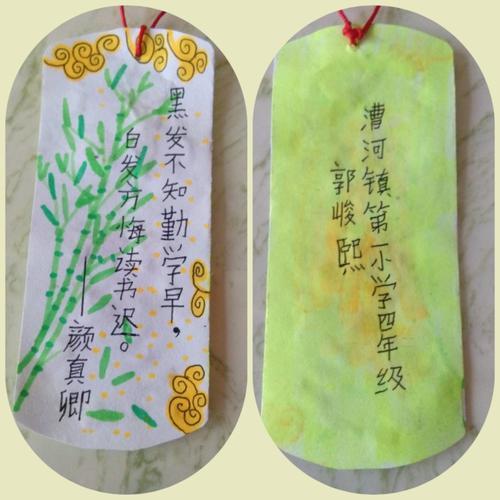 黑发不知勤学早，
白发方悔读书迟。
——颜真卿
漕河镇第一小学四年级
郭峻熙